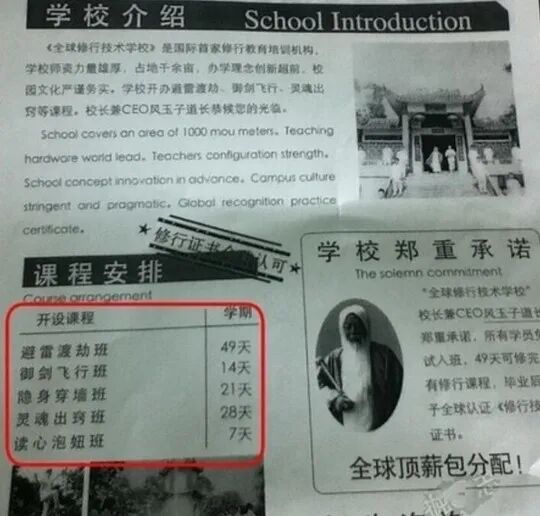 学校介绍 School Introduction
《全球修行技术学校》是国际首家修行教育培训机构，
学校师资力量雄厚，占地千余亩，办学理念创新超前，校
园文化严谨务实。学校开办避雷渡劫、御剑飞行、灵魂出
窍等课程。校长兼CEO风玉子道长恭候您的光临。
School covers an area of 1000 mou meters. Teaching
hardware world lead. Teachers configuration strength.
School concept innovation in advance. Campus culture
stringent and pragmatic. Global recognition practice
certificate.
修行证书 认可
课程安排
Course arrangement
开设课程 学期
避雷渡劫班 49天
御剑飞行班 14天
隐身穿墙班 21天
灵魂出窍班 28天
读心泡妞班 7天
学校郑重承诺
The solemn commitment
"全球修行技术学校"
校长兼CEO风玉子道长
郑重承诺，所有学员
试入班，49天可修完
有修行课程，毕业后
予全球认证《修行技
证书。
全球顶薪包分配！